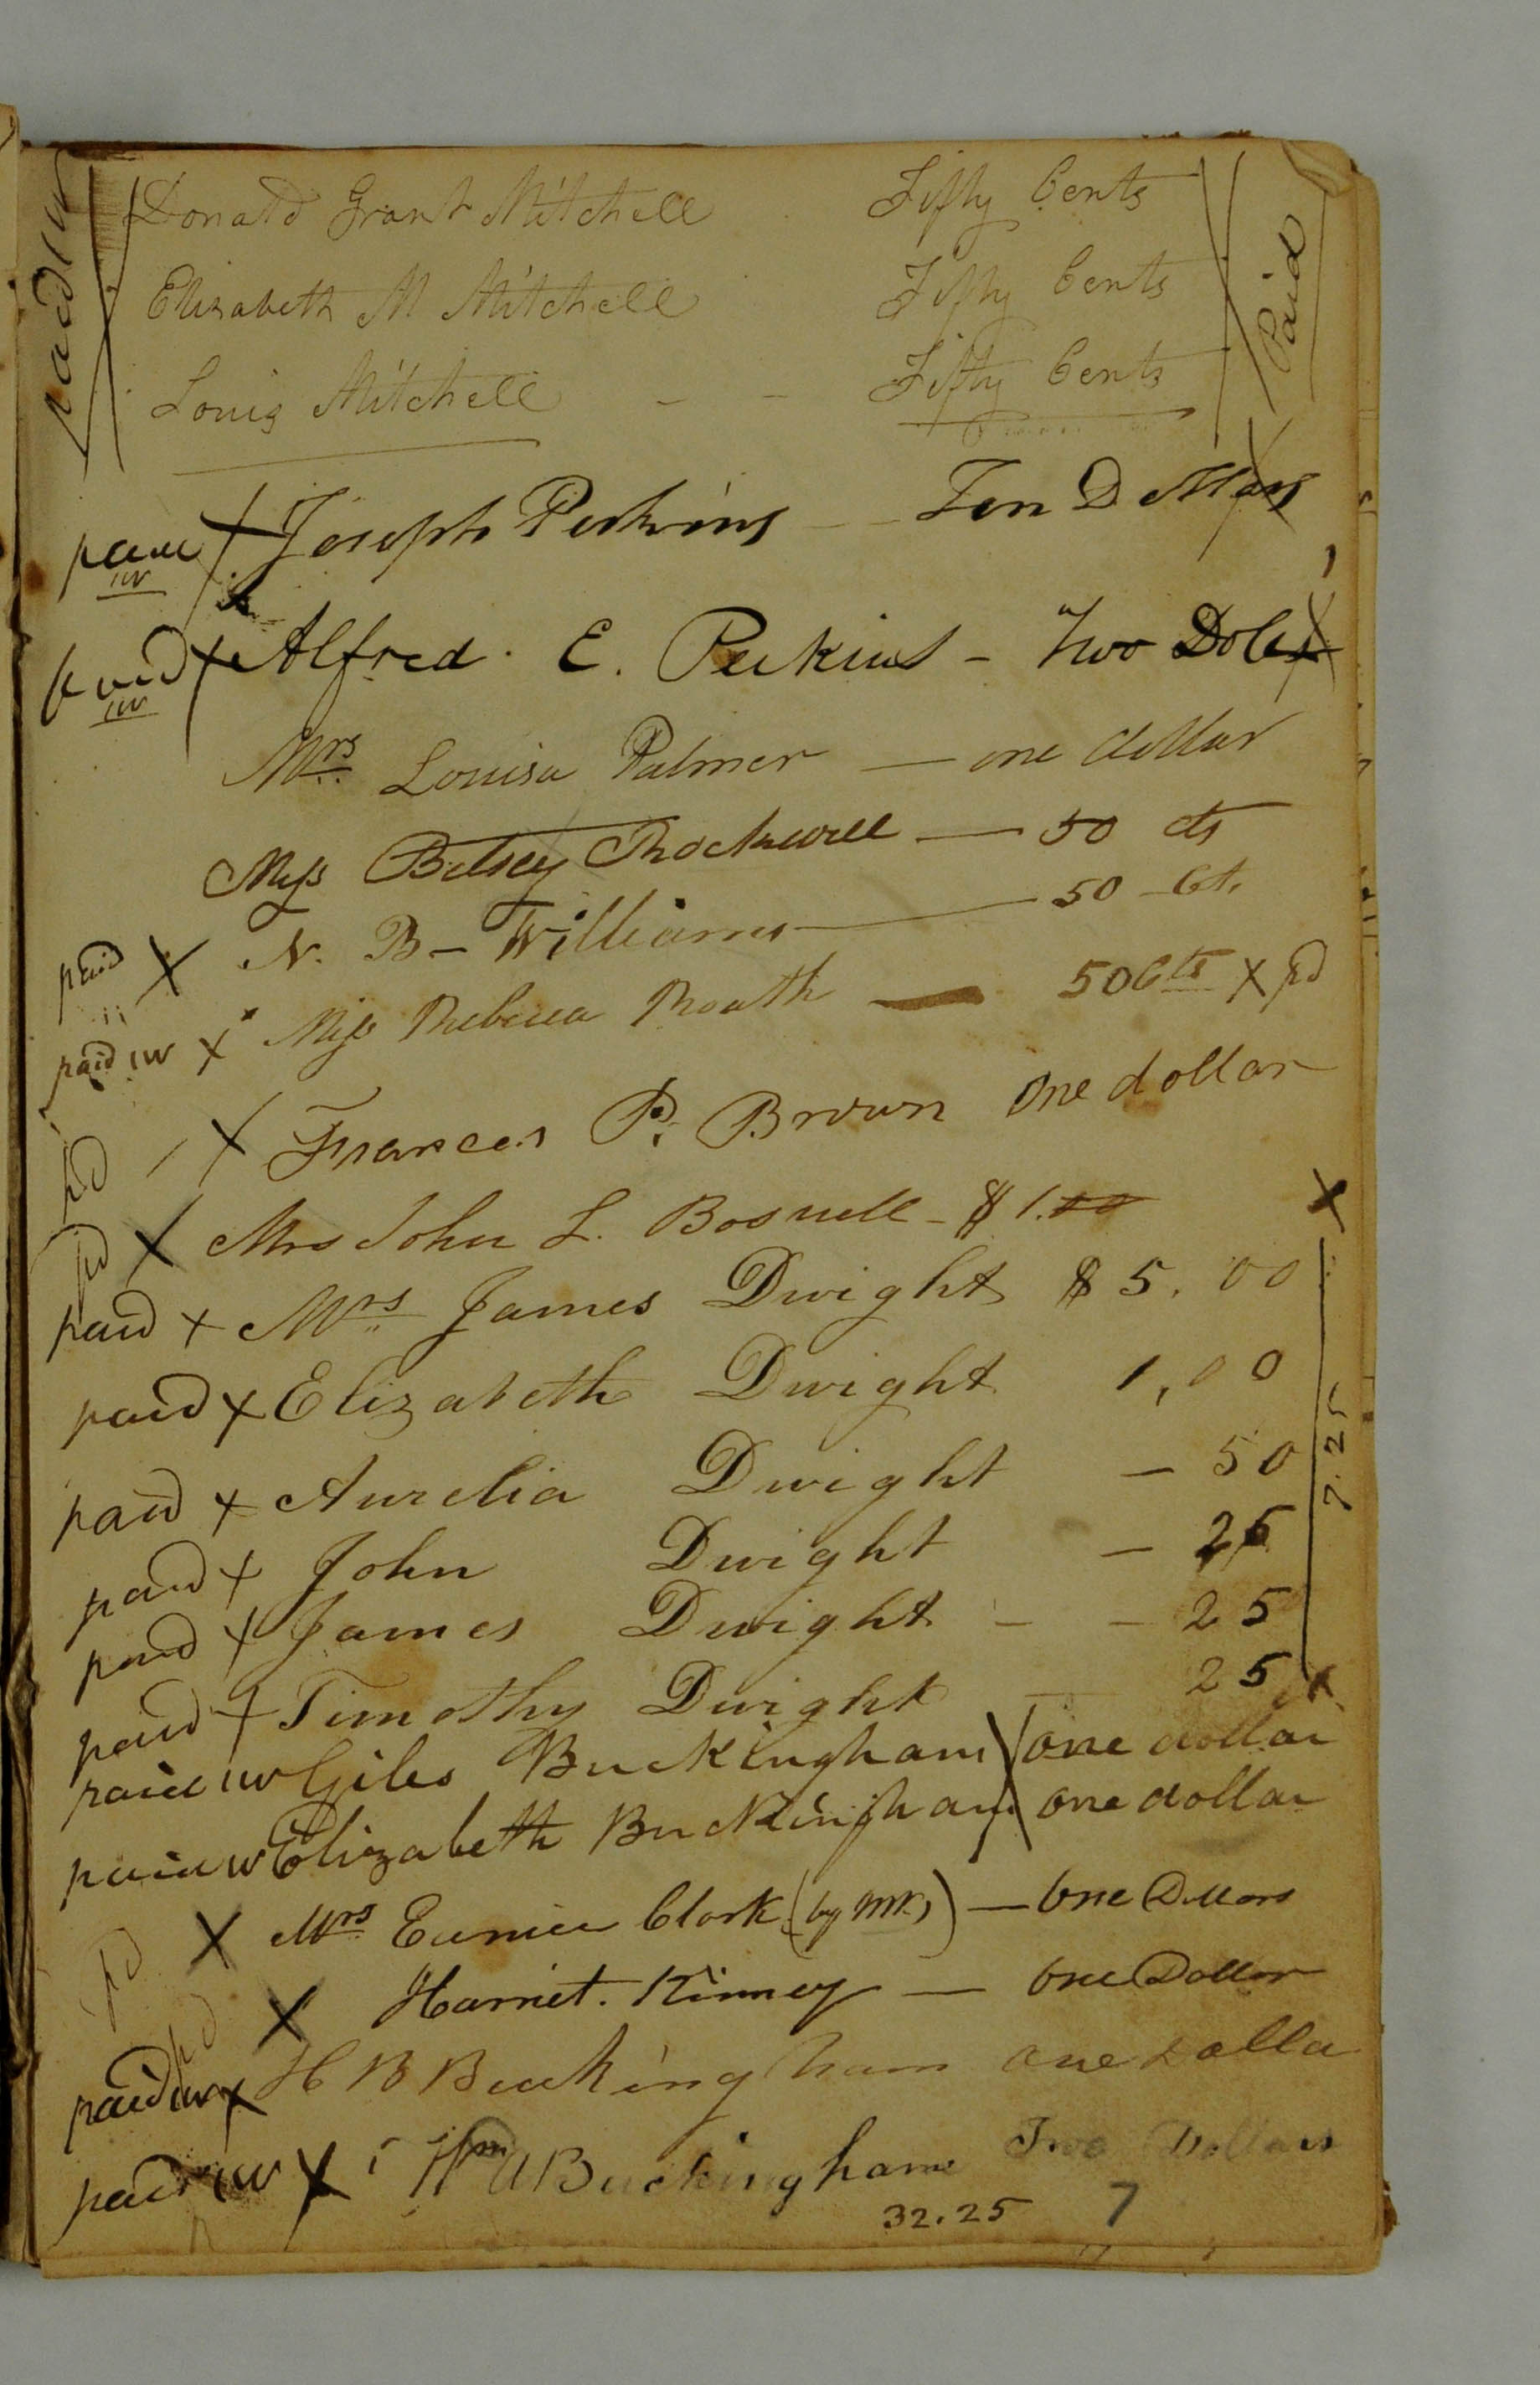 paid IW Donald Grant Mitchell Fifty Cents Paid
Elizabeth M Mitchell Fifty Cents
Louis Mitchell - - Fifty Cents
paid IW X Joseph Perkins - - Ten Dollars
paid IW X Alfred. E. Perkins - Two Dolls
Mrs Louisa Palmer — one dollar
Miss Betsey Rockwell — 50 cts
paid X N. B - Williams — 50 Ct.
paid IW X Miss Rebecca Routh — 50 Cts X pd
pd X Frances P. Brown One dollar
pd X Mrs John L. Boswell - $1.00
paid X Mrs James Dwight $5.00
paid X Elizabeth Dwight 1,00
paid X Aurelia Dwight - 50
7.25
paid X John Dwight - 25
paid X James Dwight - - 25
paid X Timothy Dwight 25
paid IW Giles Buckingham X one dollar
paid IW Elizabeth Buckingham X one dollar
pd X Mrs Eunice Clark (by MK) — One Dollars
pd X Harriet. Kinney — One Dollar
paid IW X H B Buckingham One dolla
paid IW X Wm A Buckingham Two Dollars
32.25 7